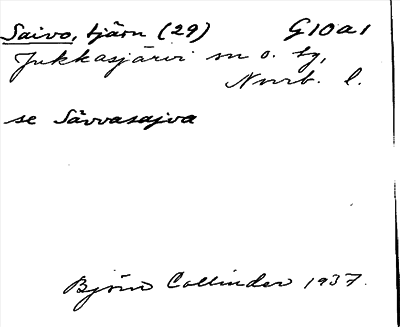 Saivo, tjärn (29) G10a1
Jukkasjärvi sn o. tg,
Norrb. l.
se Sävvasajva
Björn Collinder 1937.